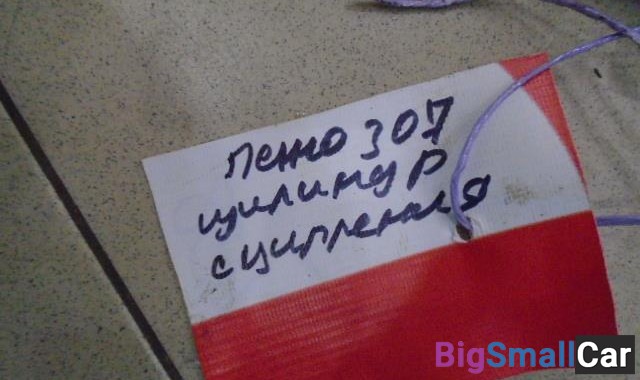 пежо 307
цилиндр
сципления
BigSmallCar